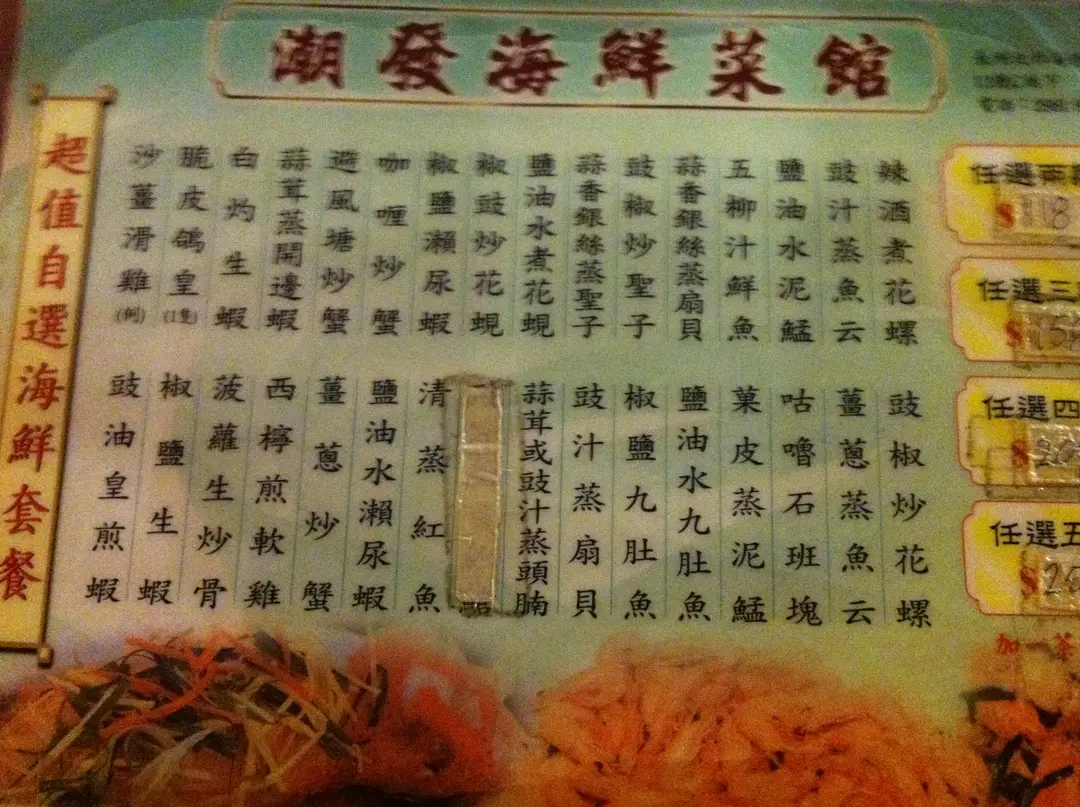 潮發海鮮菜館
超值自選海鮮套餐
辣酒煮花螺
豉汁蒸魚云
鹽油水泥鯭
五柳汁鮮魚
蒜香銀絲蒸扇貝
豉椒炒聖子
蒜香銀絲蒸聖子
鹽油水煮花蜆
椒豉炒花蜆
椒鹽瀨尿蝦
咖喱炒蟹
避風塘炒蟹
蒜茸蒸開邊蝦
白灼生蝦
脆皮鴿皇(1隻)
沙薑滑雞(例)
豉椒炒花螺
薑蔥蒸魚云
咕嚕石班塊
菓皮蒸泥鯭
鹽油水九肚魚
椒鹽九肚魚
豉汁蒸扇貝
蒜茸或豉汁蒸頭腩
清蒸紅魚
鹽油水瀨尿蝦
薑蔥炒蟹
西檸煎軟雞
菠蘿生炒骨
椒鹽生蝦
豉油皇煎蝦
任選兩
$118
任選三
$15
任選四
$20
任選五
$2
加一茶